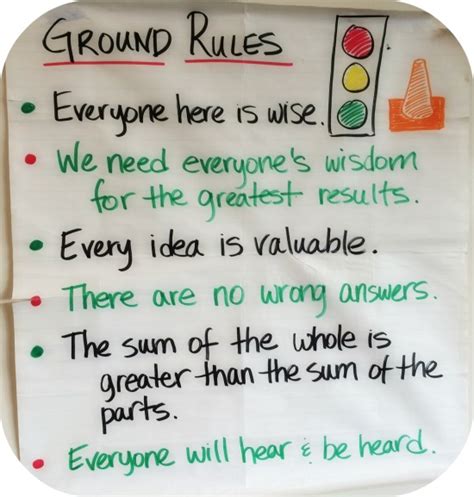 GROUND RULES
• Everyone here is wise.
• We need everyone's wisdom
for the greatest results.
• Every idea is valuable.
• There are no wrong answers.
• The sum of the whole is
greater than the sum of the
parts.
• Everyone will hear & be heard.